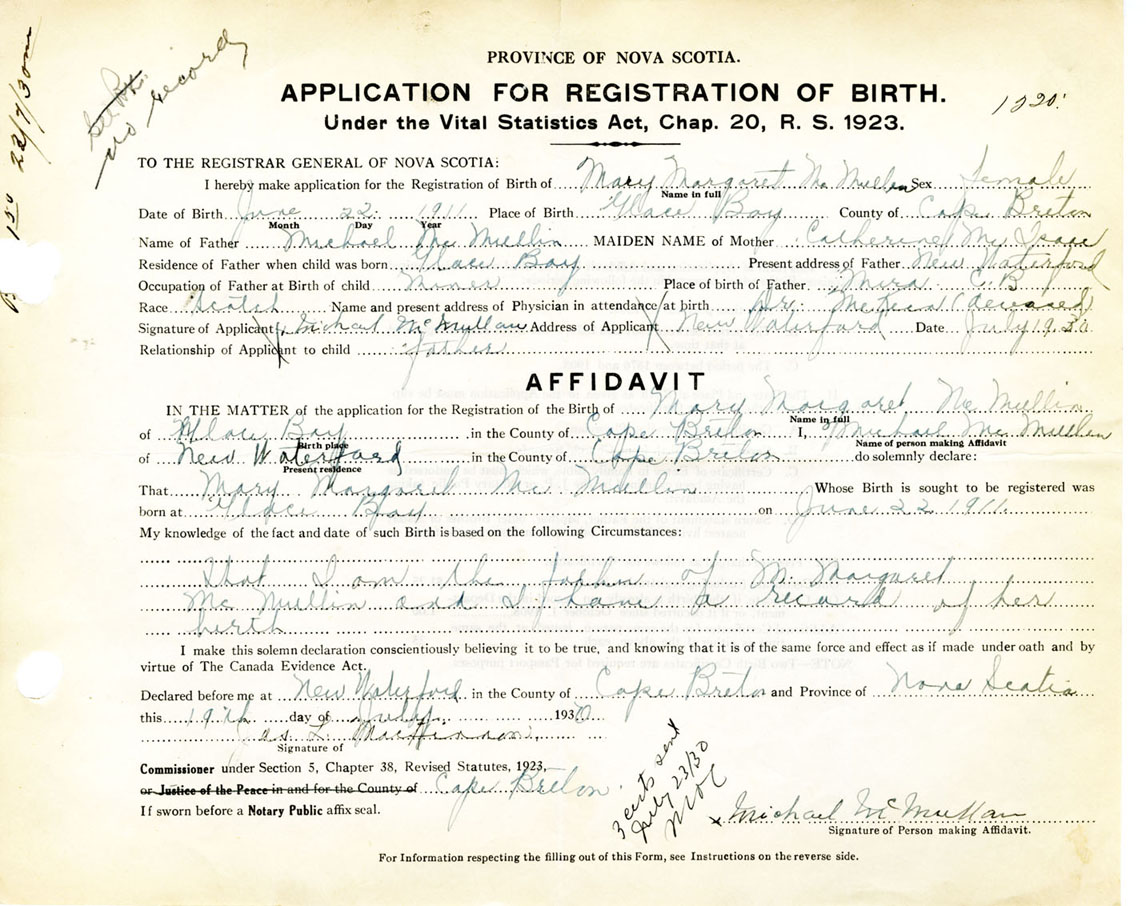 22/7/30
no record
PROVINCE OF NOVA SCOTIA.
APPLICATION FOR REGISTRATION OF BIRTH.
1220
Under the Vital Statistics Act, Chap. 20, R. S. 1923.
TO THE REGISTRAR GENERAL OF NOVA SCOTIA:
I hereby make application for the Registration of Birth of Mary Margaret Mc Mullin Sex Female
Name in full
Date of Birth June 22 1911 Place of Birth Glace Bay County of Cape Breton
Month Day Year
Name of Father Michael Mc Mullin MAIDEN NAME of Mother Catherine Mc Isaac
Residence of Father when child was born Glace Bay Present address of Father New Waterford
Occupation of Father at Birth of child Miner Place of birth of Father Mira C.B
Race Scotch Name and present address of Physician in attendance at birth Dr. McKean (deceased)
Signature of Applicant Michael McMullan Address of Applicant New Waterford Date July 19.30
Relationship of Applicant to child father
AFFIDAVIT
IN THE MATTER of the application for the Registration of the Birth of Mary Margaret Mc Mullin
Name in full
of Glace Bay in the County of Cape Breton I, Michael Mc Mullen
Birth place Name of person making Affidavit
of New Waterford in the County of Cape Breton do solemnly declare:
Present residence
That Mary Margaret Mc Mullin Whose Birth is sought to be registered was
born at Glace Bay on June 22 1911.
My knowledge of the fact and date of such Birth is based on the following Circumstances:
That I am the father of M. Margaret
Mc Mullin and I have a record of her
birth
I make this solemn declaration conscientiously believing it to be true, and knowing that it is of the same force and effect as if made under oath and by
virtue of The Canada Evidence Act.
Declared before me at New Waterford in the County of Cape Breton and Province of Nova Scotia
this 19th day of July 1930
Jas. L. MacKinnon
Signature of
Commissioner under Section 5, Chapter 38, Revised Statutes, 1923,
or Justice of the Peace in and for the County of Cape Breton
If sworn before a Notary Public affix seal.
3 certs sent
July 23/30
x Michael McMullan
Signature of Person making Affidavit.
For Information respecting the filling out of this Form, see Instructions on the reverse side.